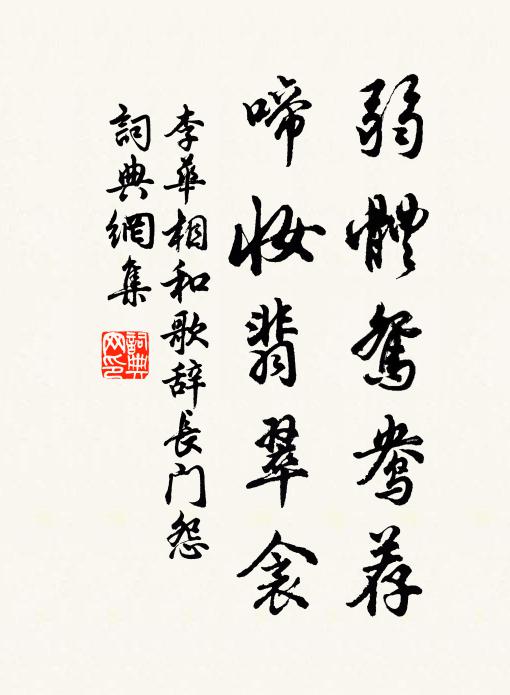 弱體鴛鴦荐
啼妝翡翠衾
李華相和歌辞長门怨
詞典網集
詞典网印